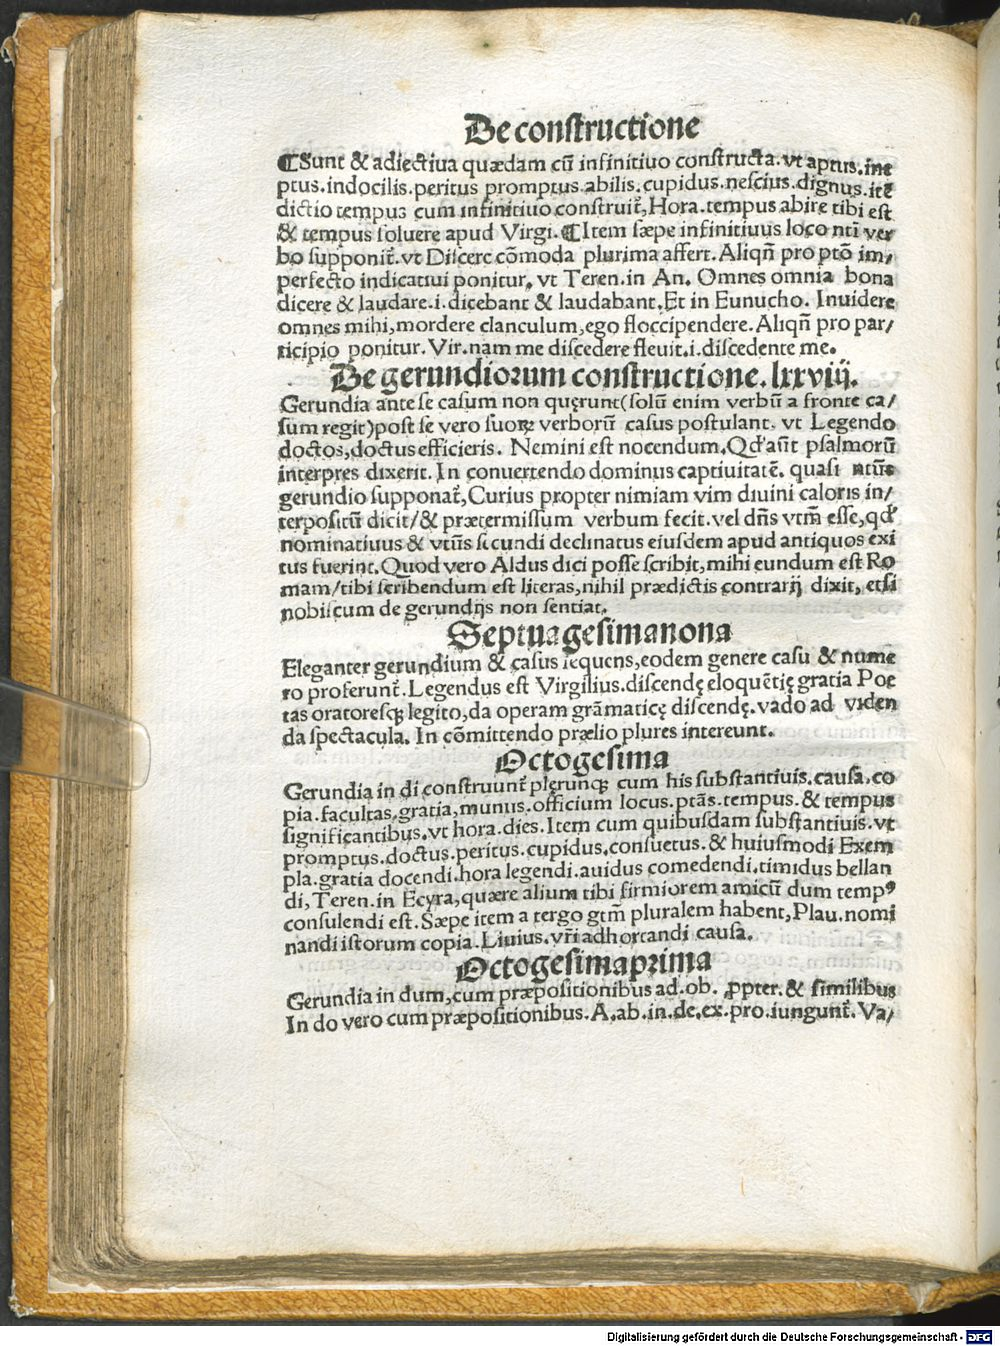 De constructione
¶Sunt & adiectiua quædam cū infinitiuo constructa. vt aptus. ine
ptus. indocilis. peritus promptus. abilis. cupidus. nescius. dignus. itē
dictio tempus cum infinitiuo construit̃, Hora. tempus abire tibi est
& tempus soluere apud Virgi. ¶Item sæpe infinitiuus loco nti ver
bo supponit̃. vt Discere cōmoda plurima affert. Aliqñ pro ptō im/
perfecto indicatiui ponitur, vt Teren. in An. Omnes omnia bona
dicere & laudare. i. dicebant & laudabant. Et in Eunucho. Inuidere
omnes mihi, mordere clanculum, ego floccipendere. Aliqñ pro par/
ticipio ponitur. Vir. nam me discedere fleuit. i. discedente me.
De gerundiorum constructione. lxxviij.
Gerundia ante se casum non quęrunt (solū enim verbū a fronte ca/
sum regit) post se vero suoꝝ verborū casus postulant. vt Legendo
doctos, doctus efficieris. Nemini est nocendum. Qd' aūt psalmorū
interpres dixerit. In conuertendo dominus captiuitatē. quasi ntūs
gerundio supponat̃, Curius propter nimiam vim diuini caloris in/
terpositū dicit/ & prætermissum verbum fecit. vel dñs vtm̃ esse, qd'
nominatiuus & vtūs secundi declinatus eiusdem apud antiquos exi
tus fuerint. Quod vero Aldus dici posse scribit, mihi eundum est Ro
mam/ tibi scribendum est literas, nihil prædictis contrarij dixit, etsi
nobiscum de gerundijs non sentiat.
Septuagesimanona
Eleganter gerundium & casus sequens, eodem genere casu & nume
ro proferunt̃. Legendus est Virgilius. discendę eloquētię gratia Poe
tas oratoresqꝫ legito, da operam grāmaticę discendę. vado ad viden
da spectacula. In cōmittendo prælio plures intereunt.
Octogesima
Gerundia in di construunt̃ plerunqꝫ cum his substantiuis. causa. co
pia. facultas. gratia, munus. officium locus. ptās. tempus. & tempus
significantibus. vt hora. dies. Item cum quibusdam substantiuis. vt
promptus. doctus. peritus. cupidus. consuetus. & huiusmodi Exem
pla. gratia docendi. hora legendi. auidus comedendi. timidus bellan
di, Teren. in Ecyra, quære alium tibi firmiorem amicū dum tempꝰ
consulendi est. Sæpe item a tergo gtm̃ pluralem habent, Plau. nomi
nandi istorum copia. Liuius. vr̃i adhortandi causa.
Octogesimaprima
Gerundia in dum, cum præpositionibus ad. ob. ꝓpter. & similibus
In do vero cum præpositionibus. A. ab. in. de. ex. pro. iungunt̃. Va/
Digitalisierung gefördert durch die Deutsche Forschungsgemeinschaft - DFG